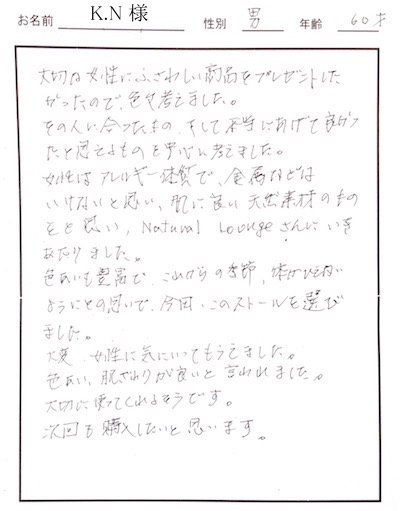 お名前 K.N 様 性別 男 年齢 60才
大切な女性にふさわしい商品をプレゼントした
かったので、色々考えました。
その人に合ったもの、そして本当にあげて良かっ
たと思えるものを中心に考えました。
女性はアレルギー体質で、金属などは
いけないと思い、肌に良い天然素材のもの
をと思い、Natural Loungeさんにいき
あたりました。
色あいも豊富で、これからの季節、体がひえない
ようにとの思いで、今回、このストールを選び
ました。
大変、女性に気にいってもらえました。
色あい、肌ざわりが良いと言われました。
大切に使ってくれるそうです。
次回も購入したいと思います。